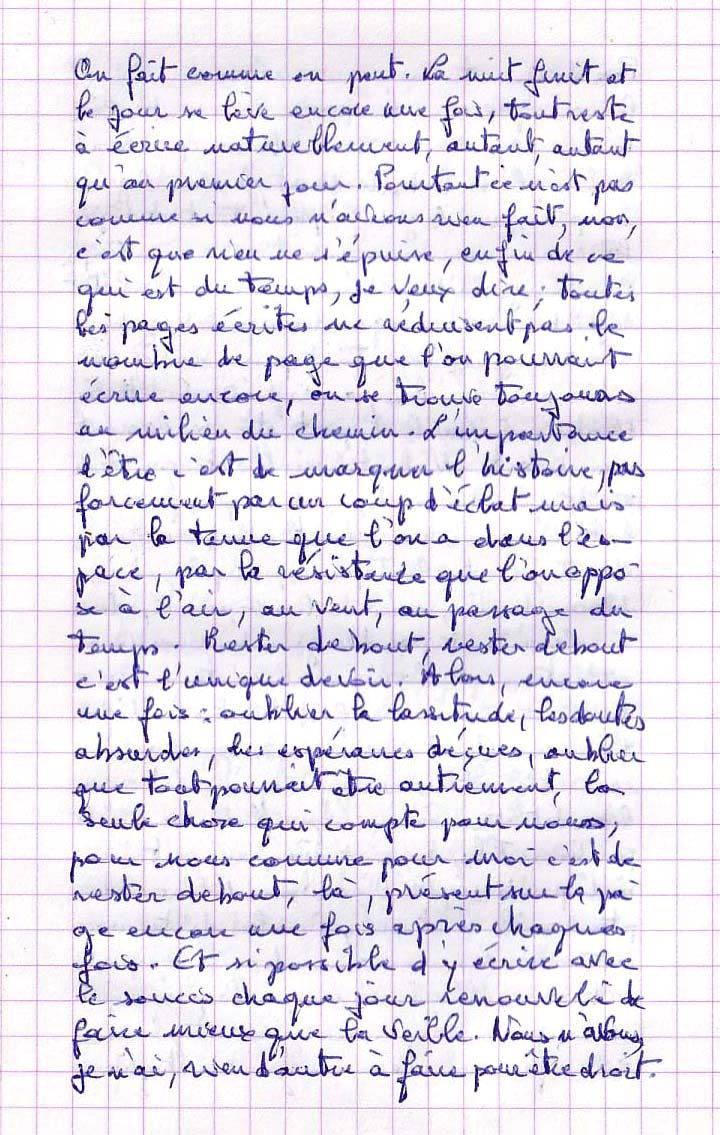 On fait comme on peut. La nuit finit et
le jour se lève encore une fois, tout reste
à écrire naturellement, autant, autant
qu'au premier jour. Pourtant ce n'est pas
comme si nous n'avions rien fait, non,
c'est que rien ne s'épuise, enfin de ce
qui est du temps, je veux dire ; toutes
les pages écrites ne réduisent pas le
nombre de page que l'on pourrait
écrire encore, on se trouve toujours
au milieu du chemin. L'importance
d'être c'est de marquer l'histoire, pas
forcement par un coup d'éclat mais
par la tenue que l'on a dans l'es-
pace, par la résistance que l'on oppo
se à l'air, au vent, au passage du
temps. Rester debout, rester debout
c'est l'unique devoir. Alors, encore
une fois : oublier la lassitude, les doutes
absurdes, les espérances déçues, oublier
que tout pourrait être autrement, la
seule chose qui compte pour nous,
pour nous comme pour moi c'est de
rester debout, là, présent sur la pa
ge encore une fois après chaques
fois. Et si possible d'y écrire avec
le soucis chaque jour renouvelé de
faire mieux que la veille. Nous n'avons,
je n'ai, rien d'autre à faire pour être droit.